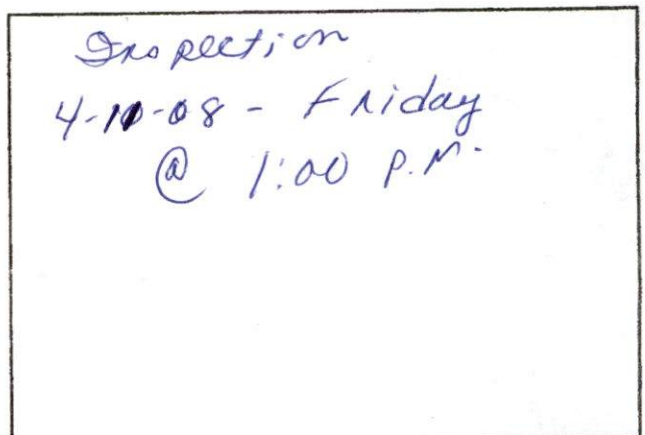 Inspection
4-11-08 - Friday
@ 1:00 P.M.